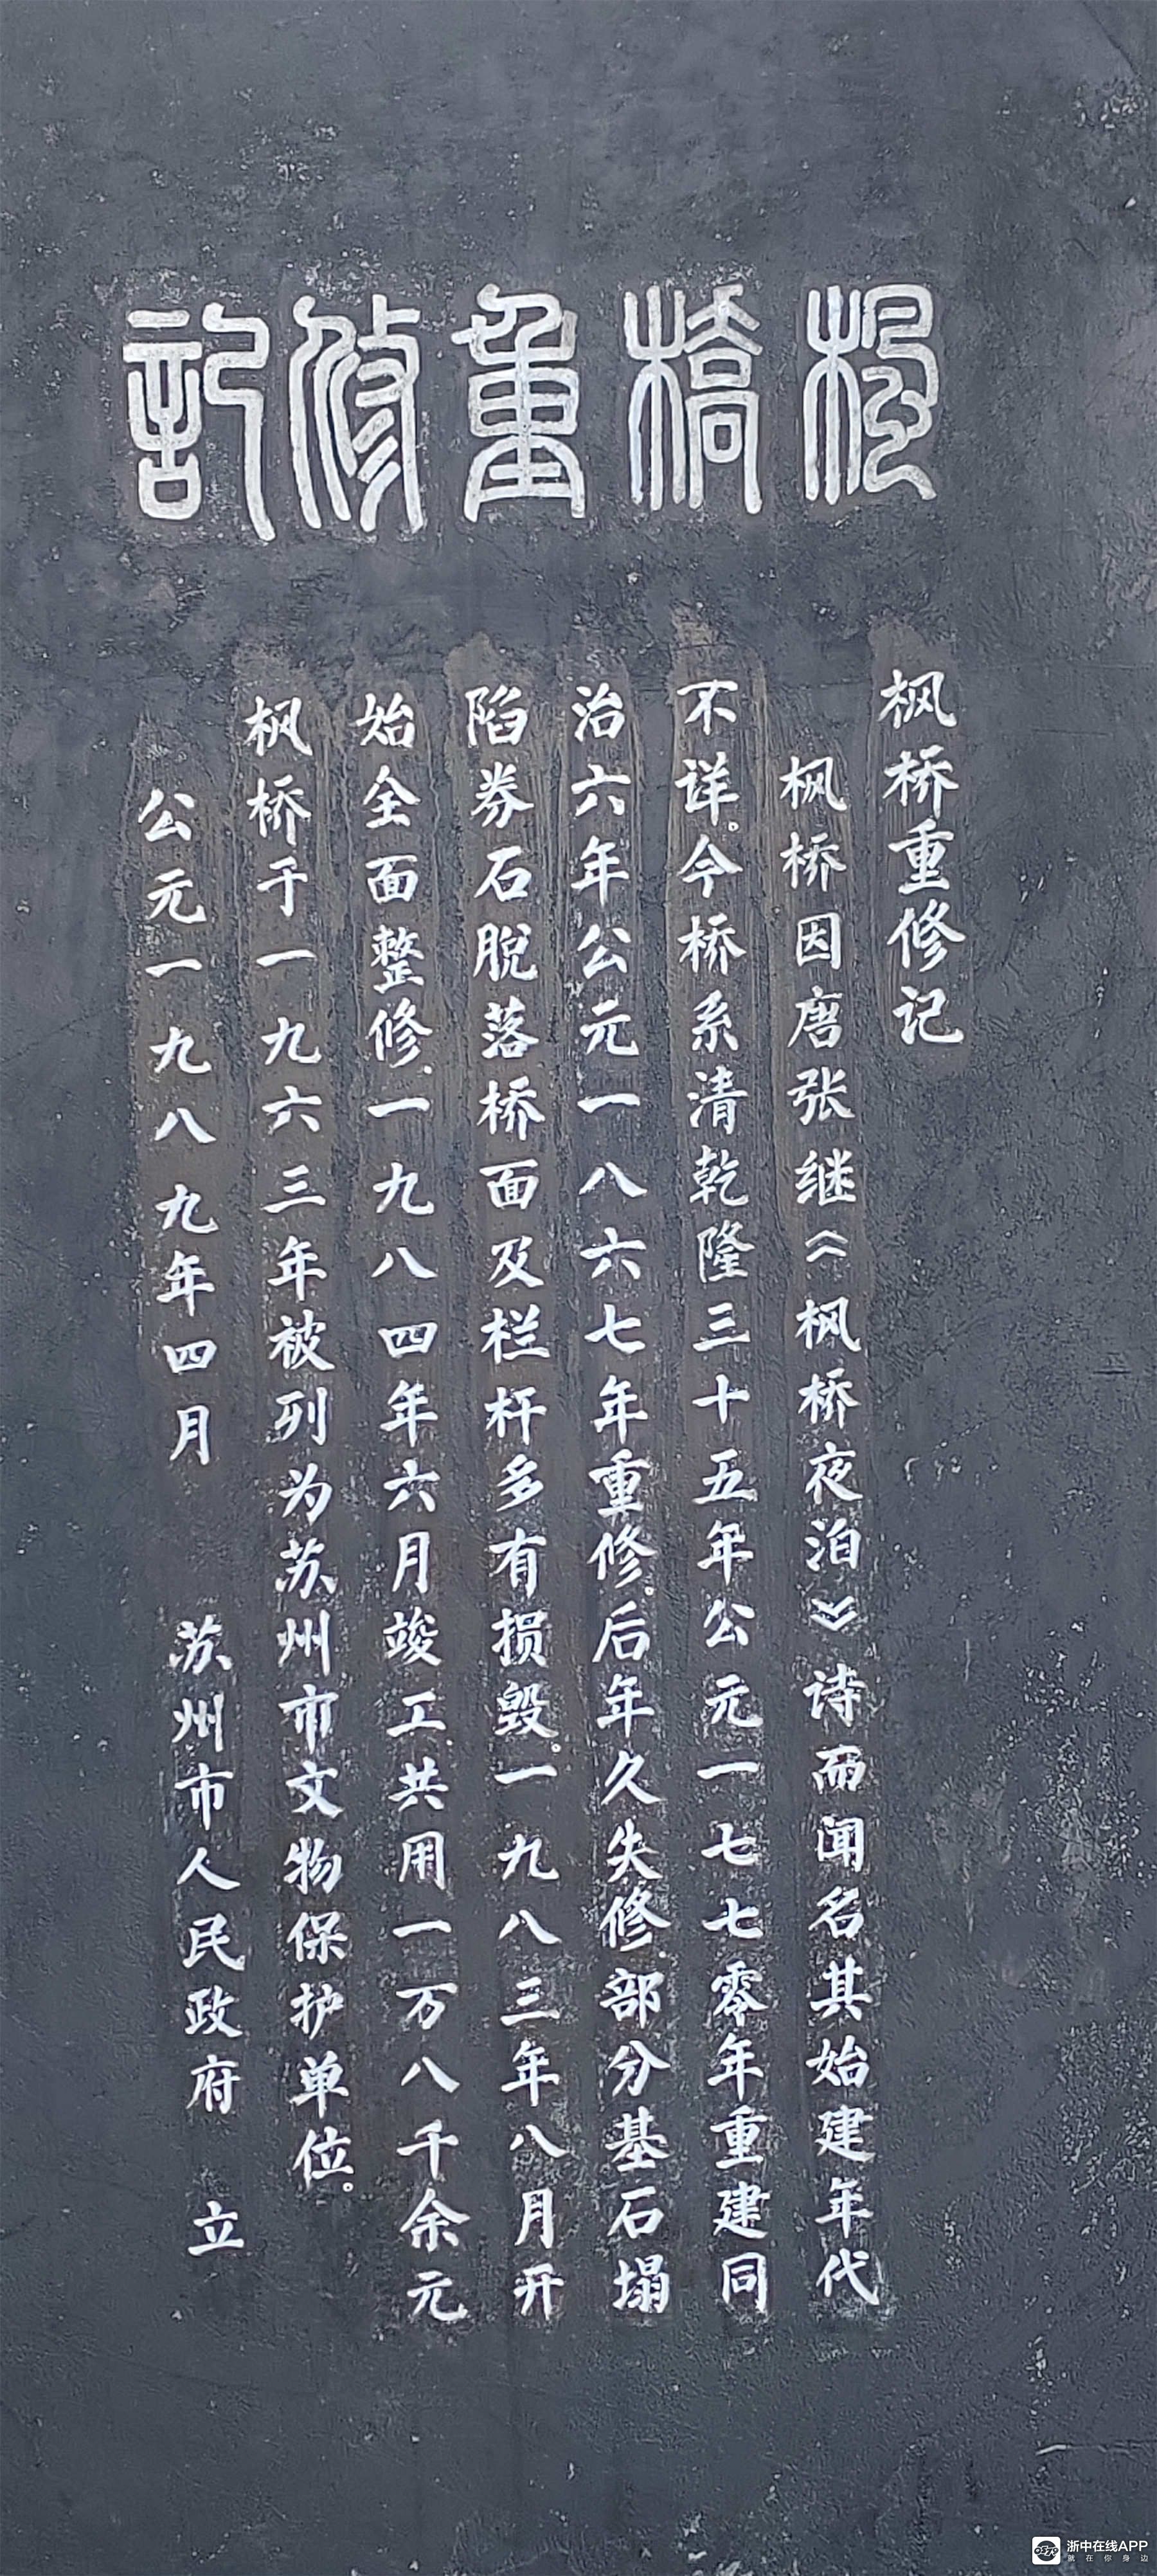 楓橋重修記
枫桥重修记
枫桥因唐张继《枫桥夜泊》诗而闻名其始建年代
不详。今桥系清乾隆三十五年公元一七七零年重建同
治六年公元一八六七年重修。后年久失修.部分基石塌
陷券石脱落桥面及栏杆多有损毁。一九八三年八月开
始全面整修.一九八四年六月竣工.共用一万八千余元
枫桥于一九六三年被列为苏州市文物保护单位。
公元一九八九年四月 苏州市人民政府 立
浙中在线APP
就在你身边